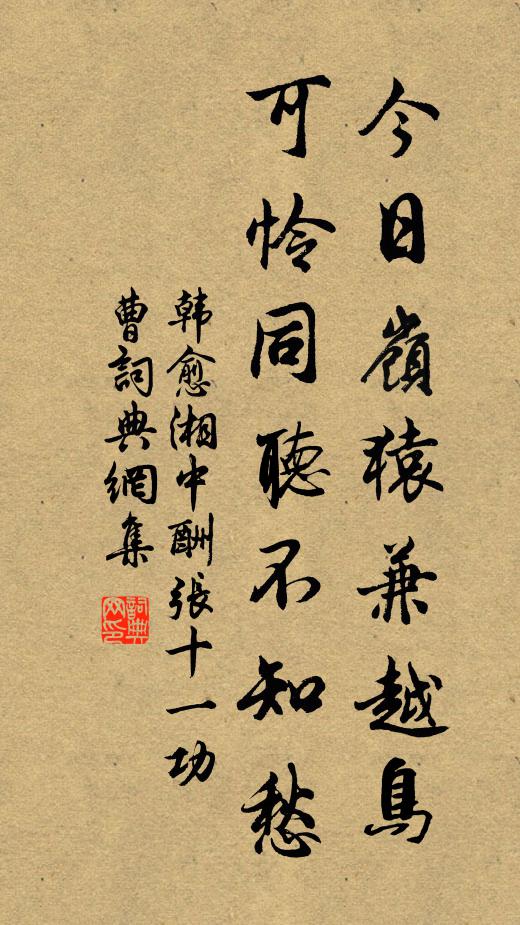 今日嶺猿兼越鳥
可怜同聽不知愁
韩愈湘中酬張十一功
曹詞典網集
詞典网印